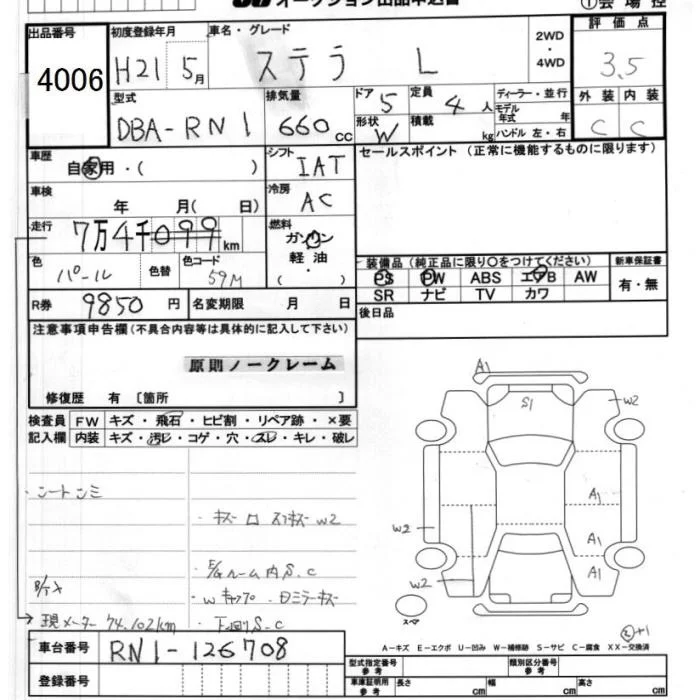 オークション出品申込書
①会場控
出品番号
4006
初度登録年月
H21 5月
車名・グレード
ステラ L
2WD
・
4WD
評価点
3.5
型式
DBA-RN1
排気量
660cc
ドア 5
定員 4人
ディーラー・並行
モデル年式 年
形状 W
積載 kg
ハンドル 左・右
外装 内装
C C
車歴
自家用・( )
シフト
IAT
セールスポイント (正常に機能するものに限ります)
車検
年 月( 日)
冷房
AC
走行
7万4千099km
燃料
ガソリン
軽油
・
( )
色
パール
色替
色コード
59M
装備品(純正品に限り○をつけてください)
PS PW ABS エアB AW
SR ナビ TV カワ
新車保証書
有・無
R券 9850円
名変期限 月 日
後日品
注意事項申告欄(不具合内容等は具体的に記入して下さい)
原則ノークレーム
修復歴 有 [箇所 ]
検査員記入欄
FW キズ・飛石・ヒビ割・リペア跡・×要
内装 キズ・汚レ・コゲ・穴・スレ・キレ・破レ
A1
S1
W2
A1
W2
A1
W2
A1
シートシミ
・キズ
W2
E/Gルーム内 S.C
現メーター 74,102km
下回り S.C
スペア
②+1
A-キズ E-エクボ U-凹み W-補修跡 S-サビ C-腐食 XX-交換済
車台番号
RN1-126708
登録番号
型式指定番号 参考
類別区分番号 参考
車庫証明用 参考
長さ cm
幅 cm
高さ cm